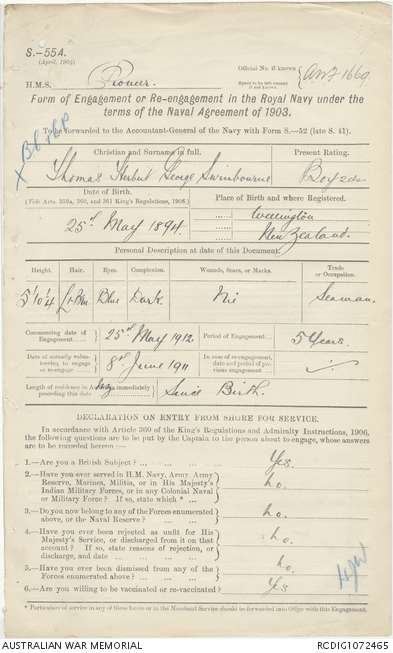 S.—55A.
(April, 1904)
Official No. if known
ANF 1669
Space to be left vacant if not known.
H.M.S. Pioneer.
Form of Engagement or Re-engagement in the Royal Navy under the
terms of the Naval Agreement of 1903.
To be forwarded to the Accountant-General of the Navy with Form S.—52 (late S. 41).
Christian and Surname in full.
Present Rating.
Thomas Herbert George Swinbourne
Boy 2 cl.
Date of Birth.
(Vide Arts. 359a, 360, and 361 King's Regulations, 1906.)
Place of Birth and where Registered.
25th May 1894
Wellington
New Zealand.
Personal Description at date of this Document.
Height.
Hair.
Eyes.
Complexion.
Wounds, Scars, or Marks.
Trade or Occupation.
5' 0¼
Lt Brn
Blue
Dark
Nil
Seaman.
Commencing date of Engagement
25th May 1912
Period of Engagement
5 Years.
Date of actually volunteering to engage or re-engage
8th June 1911
In case of re-engagement, date and period of previous engagement
Length of residence in immediately preceding this date
Since Birth.
DECLARATION ON ENTRY FROM SHORE FOR SERVICE.
In accordance with Article 360 of the King's Regulations and Admiralty Instructions, 1906,
the following questions are to be put by the Captain to the person about to engage, whose answers
are to be recorded hereon:—
1.—Are you a British Subject? ... Yes.
2.—Have you ever served in H.M. Navy, Army, Army
Reserve, Marines, Militia, or in His Majesty's
Indian Military Forces, or in any Colonial Naval
or Military Force? If so, state which * ... no.
3.—Do you now belong to any of the Forces enumerated
above, or the Naval Reserve? ... no.
4.—Have you ever been rejected as unfit for His
Majesty's Service, or discharged from it on that
account? If so, state reasons of rejection, or
discharge, and date ... no.
5.—Have you ever been dismissed from any of the
Forces enumerated above? ... no.
6.—Are you willing to be vaccinated or re-vaccinated? Yes
* Particulars of service in any of these forces or in the Merchant Service should be forwarded into Office with this Engagement.
AUSTRALIAN WAR MEMORIAL
RCDIG1072465